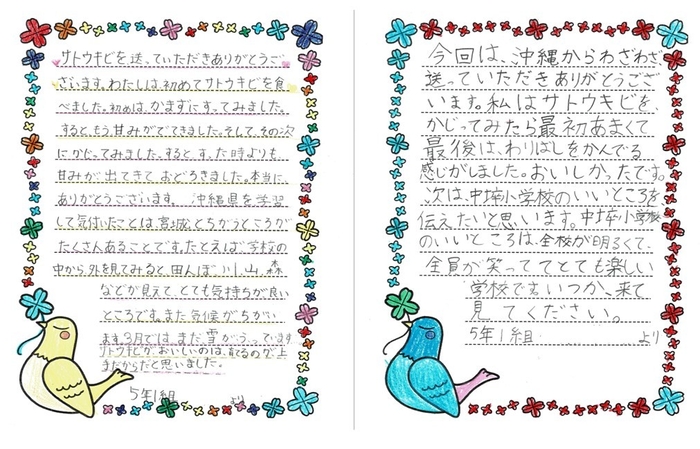 サトウキビを送っていただきありがとうご
ざいます。わたしは、初めてサトウキビを食
べました。初めは、かまずにすってみました。
するともう甘みがでてきました。そして、その次
にかじってみました。すると、すった時よりも
甘みが出てきておどろきました。本当に、
ありがとうございます。 沖縄県を学習
して気付いたことは、宮城とちがうところが
たくさんあることです。たとえば、学校の
中から外を見てみると、田んぼ、川、山、森
などが見えて、とても気持ちが良い
ところです。また気候がちがい
ます。3月では、まだ雪がふっています
サトウキビがおいしいのは、育てるのが上
手だからだと思いました。
5年1組 より
今回は、沖縄からわざわざ
送っていただきありがとうござ
います。私はサトウキビを、
かじってみたら最初あまくて
最後は、わりばしをかんでる
感じがしました。おいしかったです。
次は、中埣小学校のいいところを
伝えたいと思います。中埣小学校
のいいところは、全校が明るくて、
全員が笑っててとても楽しい
学校です。いつか、来て
見てください。
5年1組 より